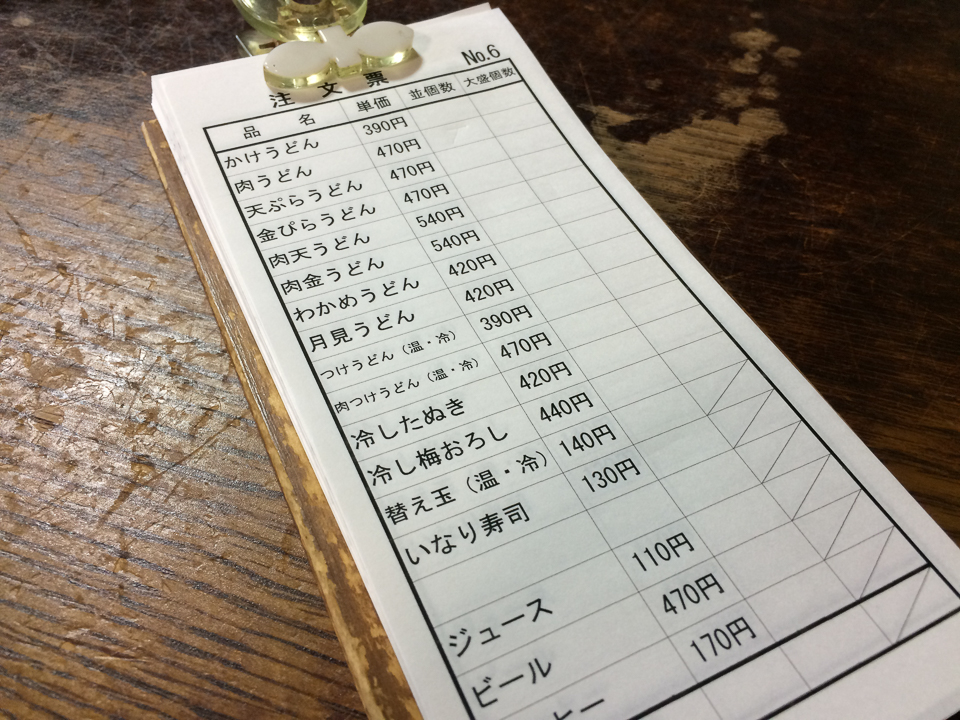 No.6
注文票
品名 単価 並個数 大盛個数
かけうどん 390円
肉うどん 470円
天ぷらうどん 470円
金ぴらうどん 470円
肉天うどん 540円
肉金うどん 540円
わかめうどん 420円
月見うどん 420円
つけうどん（温・冷） 390円
肉つけうどん（温・冷） 470円
冷したぬき 420円
冷し梅おろし 440円
替え玉（温・冷） 140円
いなり寿司 130円
ジュース 110円
ビール 470円
170円